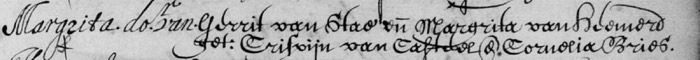 Margrita. do. Jan Gerrit van Stae en Margrita van Heemerd
get: Crispijn van Casteel &. Cornelia Bries.